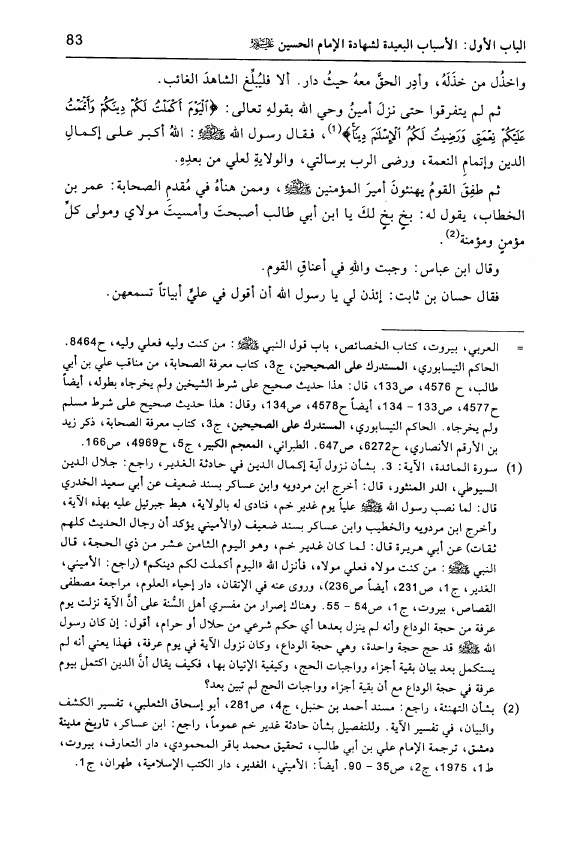 الباب الأول: الأسباب البعيدة لشهادة الإمام الحسين ﷺ 83
واخذُل من خذَلَهُ، وأدِر الحقَّ معهُ حيثُ دار. ألا فليُبلِّغ الشاهدَ الغائب.
ثم لم يتفرقوا حتى نزلَ أمينُ وحي الله بقولهِ تعالى: ﴿ٱلۡيَوۡمَ أَكۡمَلۡتُ لَكُمۡ دِينَكُمۡ وَأَتۡمَمۡتُ
عَلَيۡكُمۡ نِعۡمَتِي وَرَضِيتُ لَكُمُ ٱلۡإِسۡلَٰمَ دِينٗاۚ﴾(1)، فـقـال رسـول الله ﷺ: اللهُ أكـبـر عـلـى إكـمـالِ
الدين وإتمامِ النعمة، ورضى الرب برسالتي، والولايةِ لعلي من بعدِهِ.
ثم طفِقَ القومُ يهنئونَ أميرَ المؤمنين ﷺ، وممن هنأهُ في مُقدمِ الصحابة: عمر بن
الخطاب، يقول له: بخٍ بخٍ لكَ يا ابن أبي طالب أصبحتَ وأمسيتَ مولاي ومولى كلِّ
مؤمنٍ ومؤمنة(2).
وقال ابن عباس: وجبت واللهِ في أعناقِ القوم.
فقال حسان بن ثابت: إئذن لي يا رسول الله أن أقول في عليٍّ أبياتاً تسمعهن.
= العربي، بيروت، كتاب الخصائص، باب قول النبي ﷺ: من كنت وليه فعلي وليه، ح8464.
الحاكم النيسابوري، المستدرك على الصحيحين، ج3، كتاب معرفة الصحابة، من مناقب علي بن أبي
طالب، ح 4576، ص133، قال: هذا حديث صحيح على شرط الشيخين ولم يخرجاه بطوله، أيضاً
ح4577، ص133 - 134، أيضاً ح4578، ص134، وقال: هذا حديث صحيح على شرط مسلم
ولم يخرجاه. الحاكم النيسابوري، المستدرك على الصحيحين، ج3، كتاب معرفة الصحابة، ذكر زيد
بن الأرقم الأنصاري، ح6272، ص647. الطبراني، المعجم الكبير، ج5، ح4969، ص166.
(1) سورة المائدة، الآية: 3. بشأن نزول آية إكمال الدين في حادثة الغدير، راجع: جلال الدين
السيوطي، الدر المنثور، قال: أخرج ابن مردويه وابن عساكر بسند ضعيف عن أبي سعيد الخدري
قال: لما نصب رسول الله ﷺ علياً يوم غدير خم، فنادى له بالولاية، هبط جبرئيل عليه بهذه الآية،
وأخرج ابن مردويه والخطيب وابن عساكر بسند ضعيف (والأميني يؤكد أن رجال الحديث كلهم
ثقات) عن أبي هريرة قال: لما كان غدير خم، وهو اليوم الثامن عشر من ذي الحجة، قال
النبي ﷺ: من كنت مولاه فعلي مولاه، فأنزل الله «اليوم أكملت لكم دينكم» (راجع: الأميني،
الغدير، ج1، ص231، أيضاً ص236)، وروى عنه في الإتقان، دار إحياء العلوم، مراجعة مصطفى
القصاص، بيروت، ج1، ص54 - 55. وهناك إصرار من مفسري أهل السُّنة على أنَّ الآية نزلت يوم
عرفة من حجة الوداع وأنه لم ينزل بعدها أي حكم شرعي من حلال أو حرام، أقول: إن كان رسول
الله ﷺ قد حج حجة واحدة، وهي حجة الوداع، وكان نزول الآية في يوم عرفة، فهذا يعني أنه لم
يستكمل بعد بيان بقية أجزاء وواجبات الحج، وكيفية الإتيان بها، فكيف يقال أنَّ الدين اكتمل بيوم
عرفة في حجة الوداع مع أن بقية أجزاء وواجبات الحج لم تبين بعد؟
(2) بشأن التهنئة، راجع: مسند أحمد بن حنبل، ج4، ص281، أبو إسحاق الثعلبي، تفسير الكشف
والبيان، في تفسير الآية. وللتفصيل بشأن حادثة غدير خم عموماً، راجع: ابن عساكر، تاريخ مدينة
دمشق، ترجمة الإمام علي بن أبي طالب، تحقيق محمد باقر المحمودي، دار التعارف، بيروت،
ط1، 1975، ج2، ص35 - 90. أيضاً: الأميني، الغدير، دار الكتب الإسلامية، طهران، ج1.